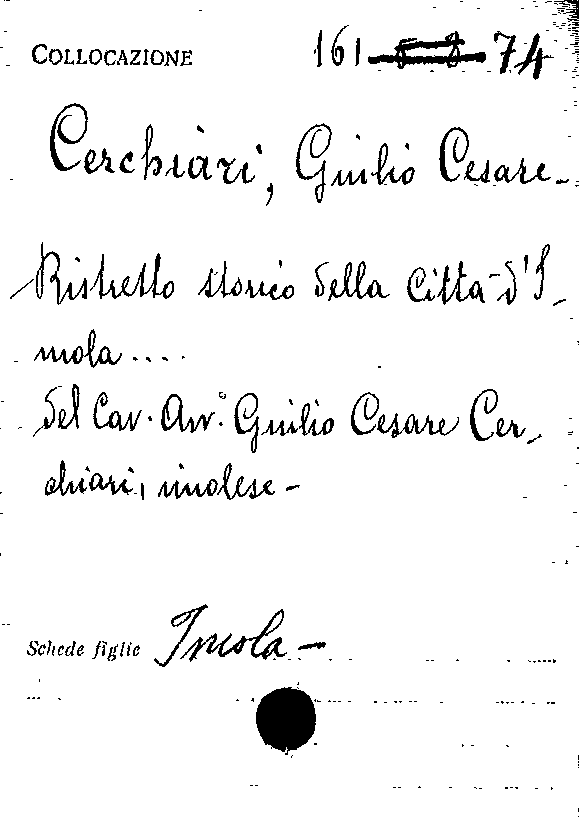 COLLOCAZIONE 161 74
Cerchiari, Giulio Cesare-
Ristretto storico della Città d'I-
mola....
del Cav. Avv.° Giulio Cesare Cer-
chiari, imolese-
Schede figlie Imola-